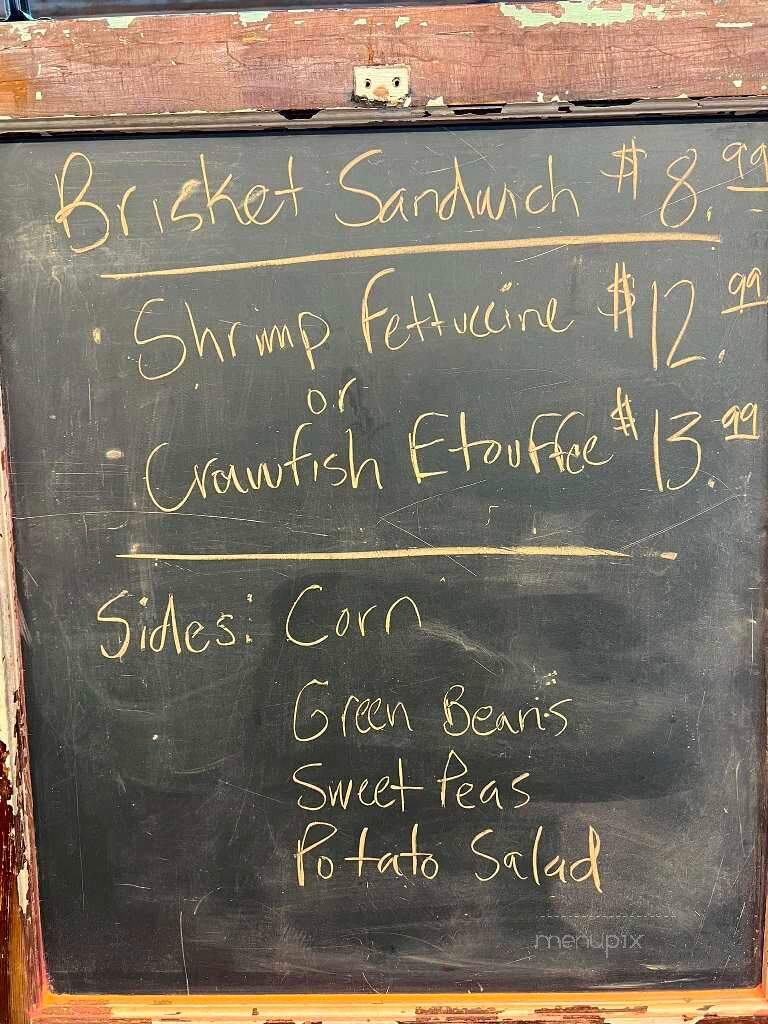 Brisket Sandwich $8.99
Shrimp Fettuccine $12.99
or
Crawfish Etouffee $13.99
Sides: Corn
Green Beans
Sweet Peas
Potato Salad
menupix